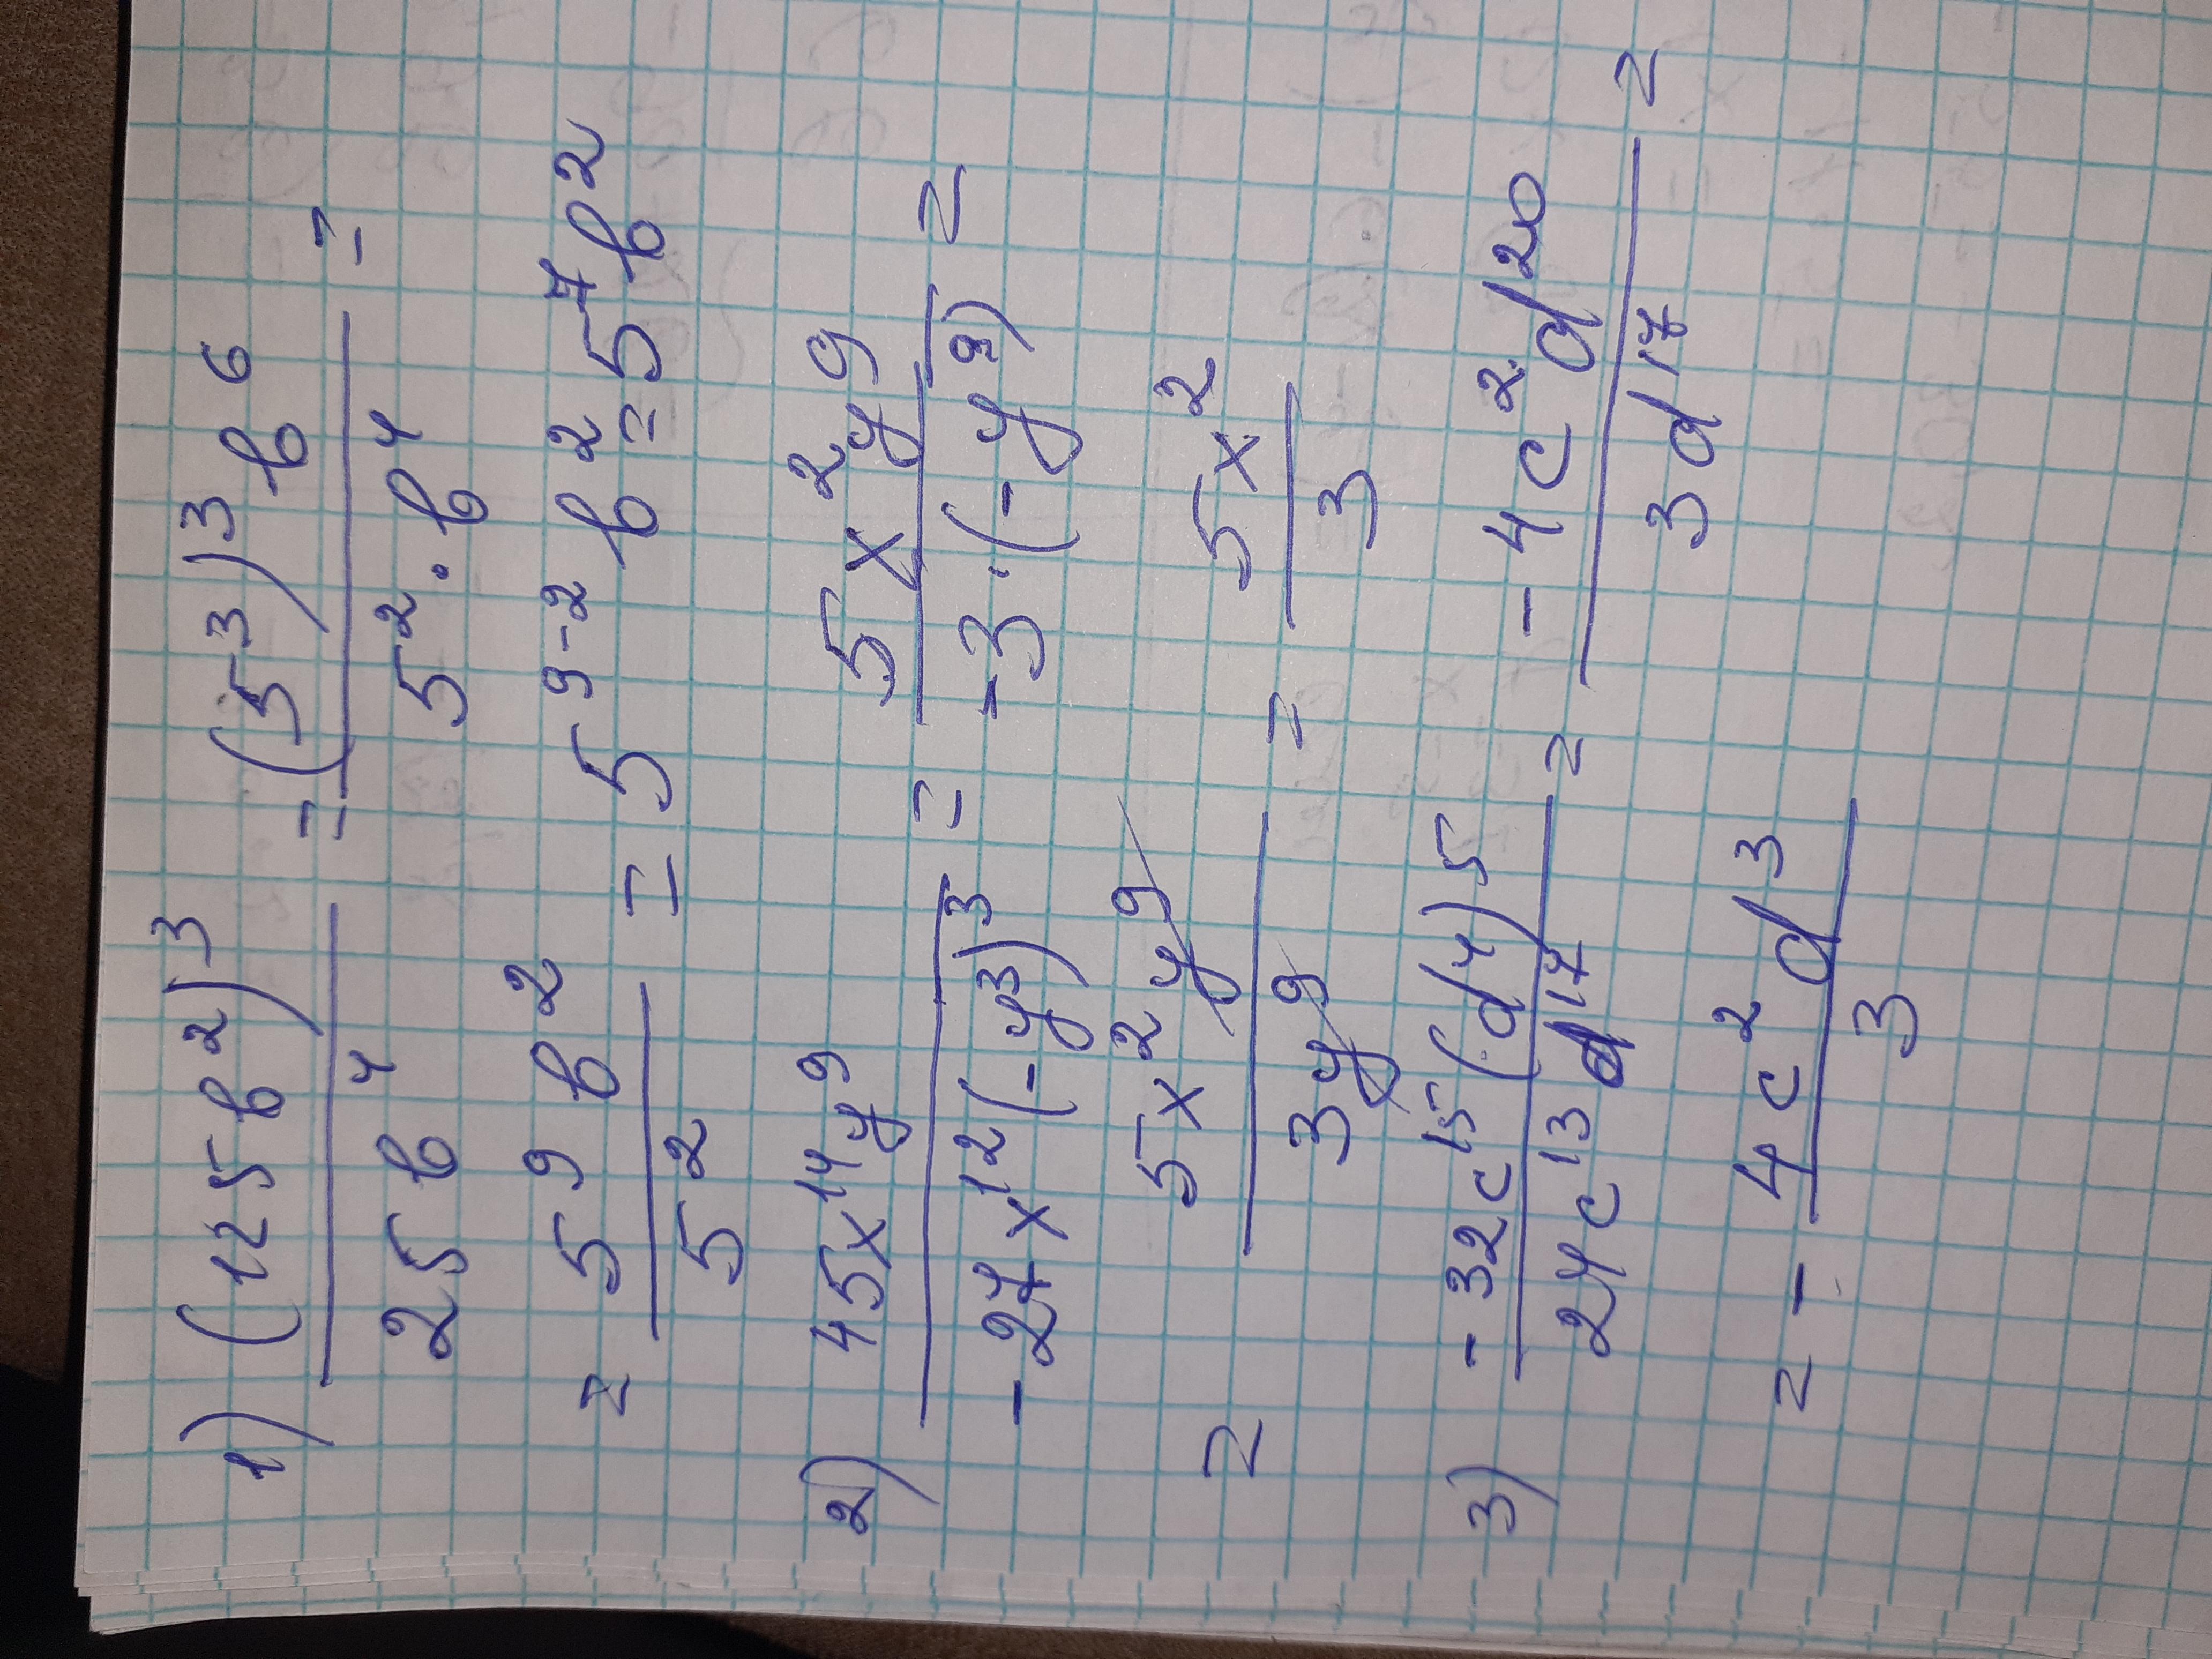 1) (125b²)³ / 25b⁴ = (5³)³b⁶ / 5²·b⁴ =
= 5⁹b² / 5² = 5⁹⁻²b² = 5⁷b²
2) 45x¹⁴y⁹ / -27x¹²(-y³)³ = 5x²y⁹ / -3·(-y⁹) =
= 5x²y⁹ / 3y⁹ = 5x² / 3
3) -32c¹⁵(d⁴)⁵ / 24c¹³d¹⁷ = -4c²d²⁰ / 3d¹⁷ =
= - 4c²d³ / 3